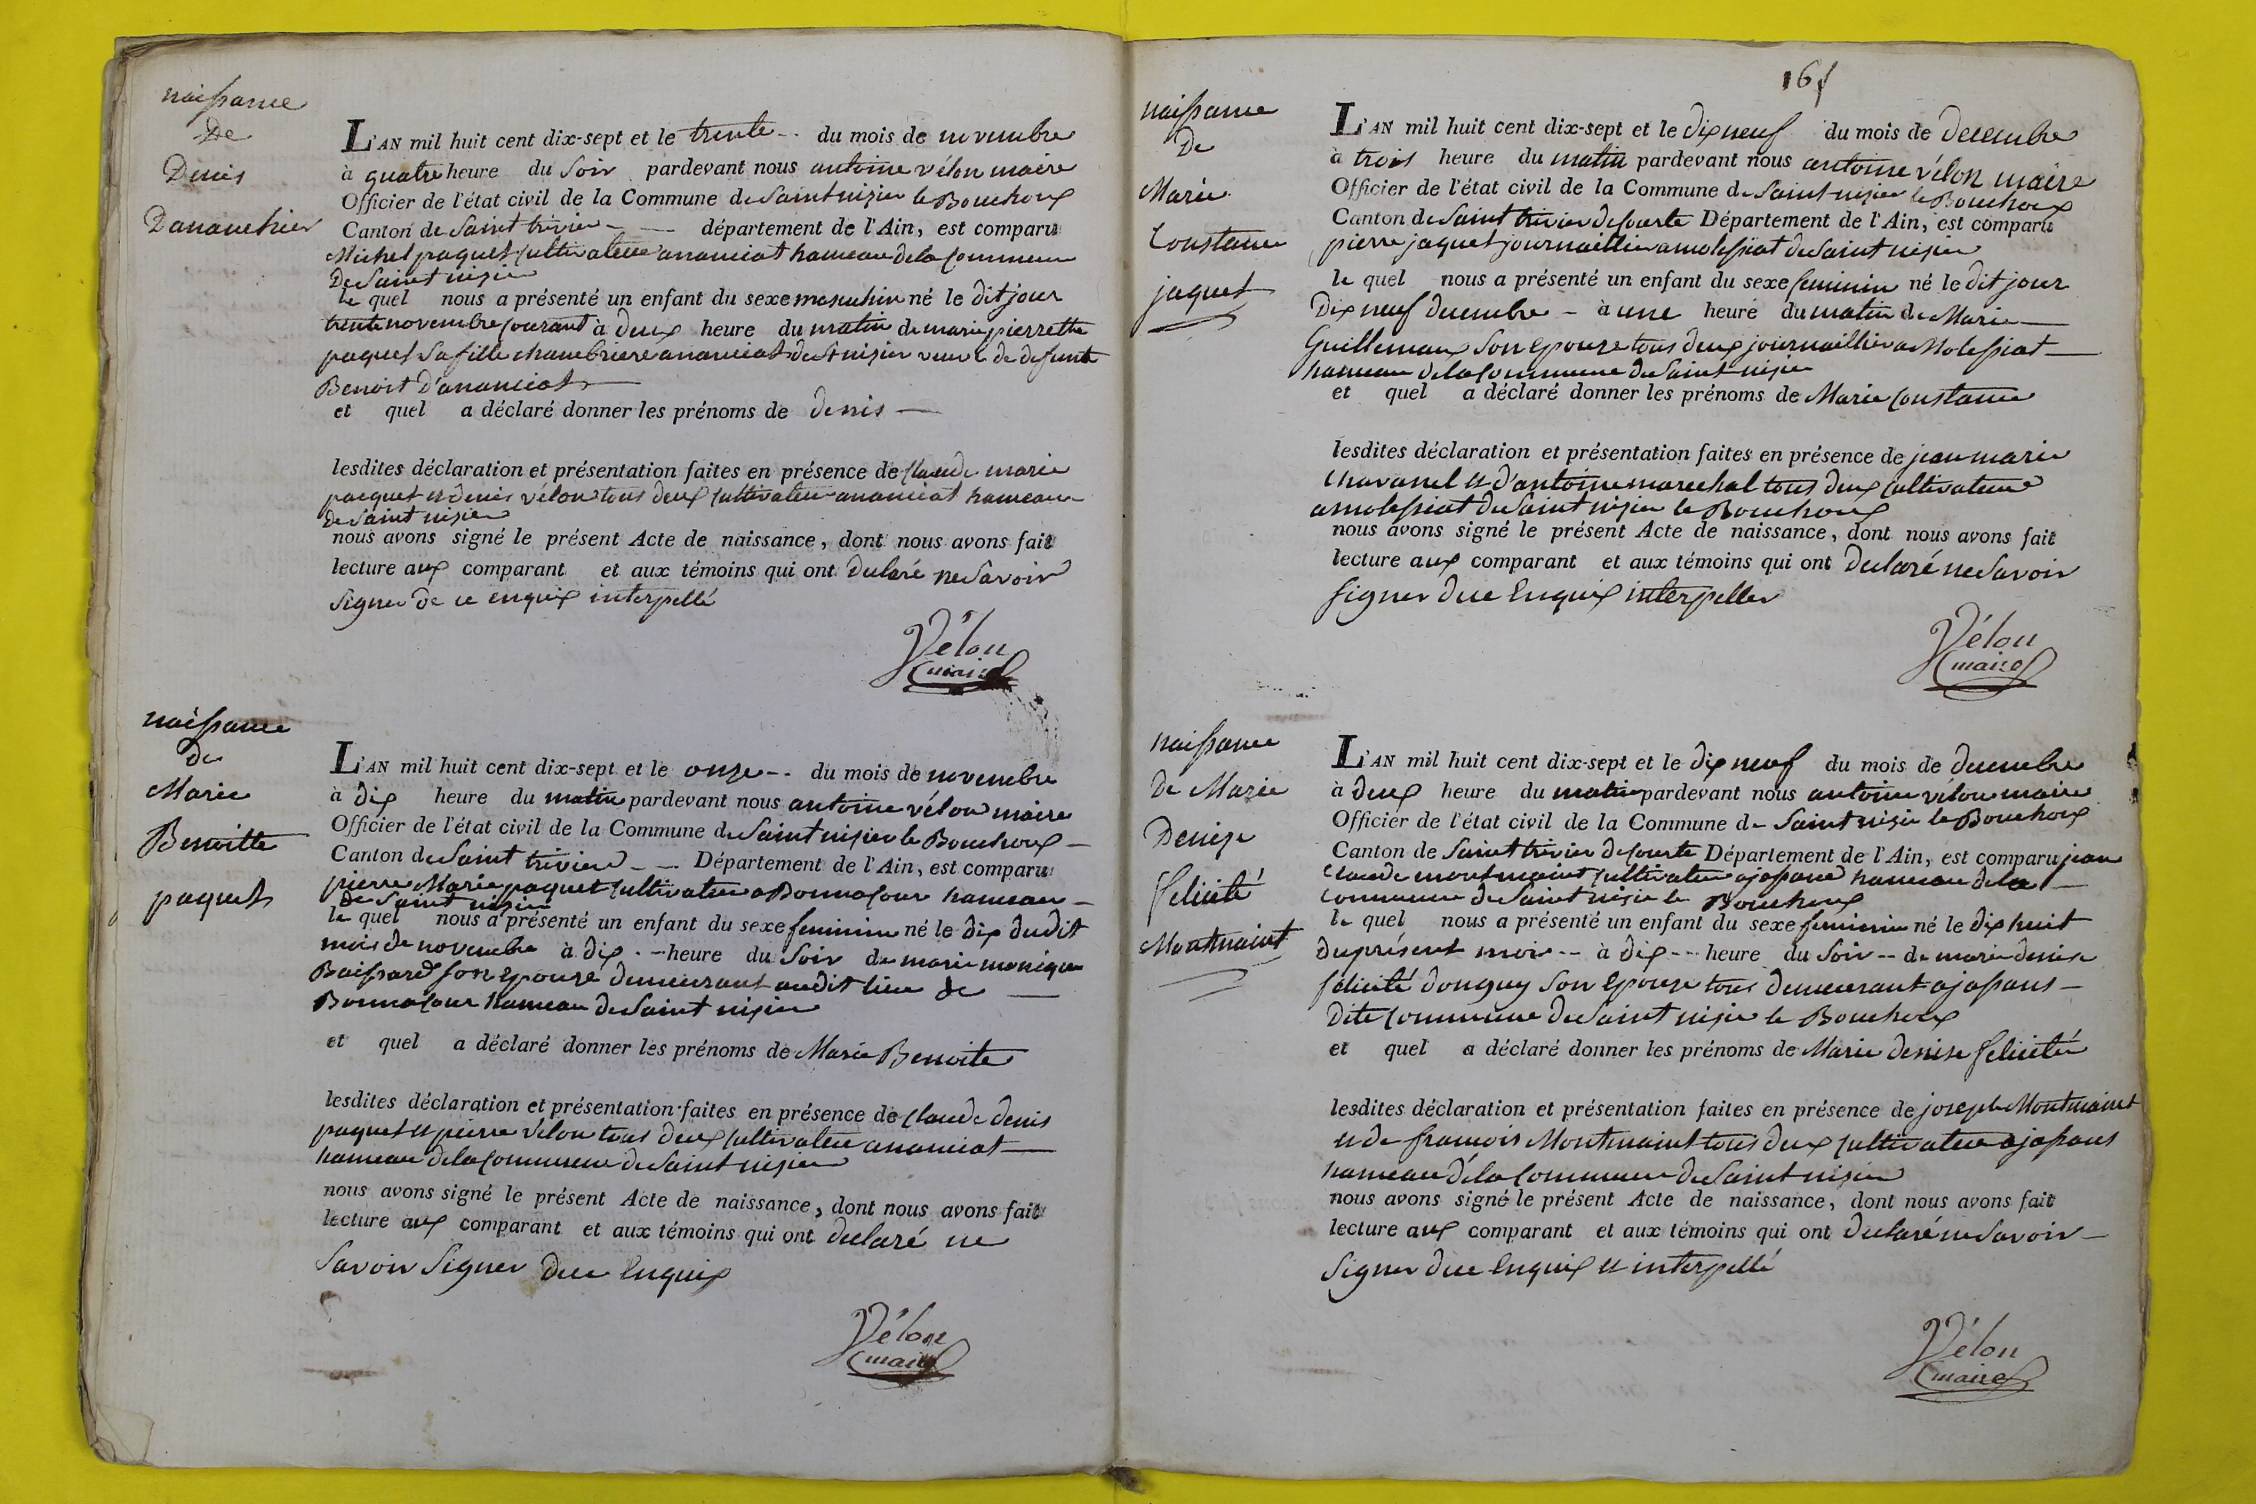 naissance
de
Denis
Dananchier
L'AN mil huit cent dix-sept et le trente -- du mois de novembre
à quatre heure du soir pardevant nous antoine vélon maire
Officier de l'état civil de la Commune de Saint nizier le Bouchoux
Canton de Saint trivier - -- département de l'Ain, est comparu
Michel paquet cultivateur ananciat hameau de la commune
De Saint nizier
le quel nous a présenté un enfant du sexe masculin né le dit jour
trente novembre courant à deux heure du matin de marie pierrette
paquet sa fille chambriere ananciat de St nizier veuve de defunt
Benoit d'ananciat
et quel a déclaré donner les prénoms de denis —
lesdites déclaration et présentation faites en présence de claude marie
paquet et denis vélon tous deux cultivateur ananciat hameau
de Saint nizier
nous avons signé le présent Acte de naissance, dont nous avons fait
lecture aux comparant et aux témoins qui ont declaré ne Savoir
Signer de ce enquix interpellé
Vélon
maire
naissance
de
Marie
Benoitte
paquet
L'AN mil huit cent dix-sept et le onze -- du mois de novembre
à dix heure du matin pardevant nous antoine vélon maire
Officier de l'état civil de la Commune de Saint nizier le Bouchoux —
Canton de Saint trivier - -- Département de l'Ain, est comparu
pierre Marie paquet cultivateur a Bonnacour hameau —
de Saint nizier
le quel nous a présenté un enfant du sexe feminin né le dix dudit
mois de novembre à dix --heure du Soir de marie monique
Baissard son epouse demeurant audit lieu de —
Bonnacour hameau de Saint nizier
et quel a déclaré donner les prénoms de Marie Benoite
lesdites déclaration et présentation faites en présence de claude denis
paquet et pierre vélon tous deux cultivateur ananciat —
hameau de la commune de Saint nizier
nous avons signé le présent Acte de naissance, dont nous avons fait
lecture aux comparant et aux témoins qui ont declaré ne
Savoir Signer dece Enquix
Vélon
maire
16
naissance
De
Marie
Constance
jaquet
L'AN mil huit cent dix-sept et le dix neuf du mois de decembre
à trois heure du matin pardevant nous antoine vélon maire
Officier de l'état civil de la Commune de Saint nizier le Bouchoux
Canton de Saint trivier de courte Département de l'Ain, est comparu
pierre jaquet journaillier a molessiat de Saint nizier
le quel nous a présenté un enfant du sexe feminin né le dit jour
Dix neuf decembre - à une heure du matin de Marie —
Guillemaux Son epouze tous deux journaillier a Molessiat —
hameau de la commune de Saint nizier
et quel a déclaré donner les prénoms de Marie Constance
lesdites déclaration et présentation faites en présence de jean marie
Chavanel et d'antoine marechal tous deux cultivateur
a molessiat de Saint nizier le Bouchoux
nous avons signé le présent Acte de naissance, dont nous avons fait
lecture aux comparant et aux témoins qui ont declaré ne Savoir
Signer dece Enquix interpeller
Vélon
maire
naissance
de Marie
Denize
felicité
Montmaint
L'AN mil huit cent dix-sept et le dix neuf du mois de decembre
à deux heure du matin pardevant nous antoine vélon maire
Officier de l'état civil de la Commune de Saint nizier le Bouchoux
Canton de Saint trivier de courte Département de l'Ain, est comparu jean
claude montmaint cultivateur a jassans hameau de la —
commune de Saint nizier le Bouchoux
le quel nous a présenté un enfant du sexe feminin né le dix huit
du présent mois -- à dix --- heure du Soir -- de marie denise
félicité donguy Son Epouze tous demeurant a jassans —
Dite commune de Saint nizier le Bouchoux
et quel a déclaré donner les prénoms de Marie denise félicité
lesdites déclaration et présentation faites en présence de joseph Montmaint
et de françois Montmaint tous deux cultivateur a jassans
hameau de la commune de Saint nizier
nous avons signé le présent Acte de naissance, dont nous avons fait
lecture aux comparant et aux témoins qui ont declaré ne Savoir —
Signer dece Enquix et interpellé
Vélon
maire